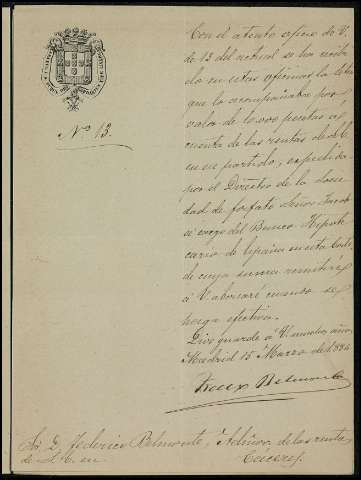 Nº 13.
Con el atento oficio de V.
de 13 del actual se ha recibi
do en estas oficinas la letra
que lo acompañaba por
valor de 10.000 pesetas á
cuenta de las rentas de
en su partido, expedida
por el Director de la Socie
dad de fosfato Señor Jacob
á cargo del Banco Hipote
cario de España en esta Corte
de cuya suma remitiré
á V. abonaré cuando se
haga efectiva.
Dios guarde á V. muchos años
Madrid 15 Marzo de 1884
Belmonte
Sr. D. Federico Belmonte, Admor. de las rentas
de S. E. en Cáceres.